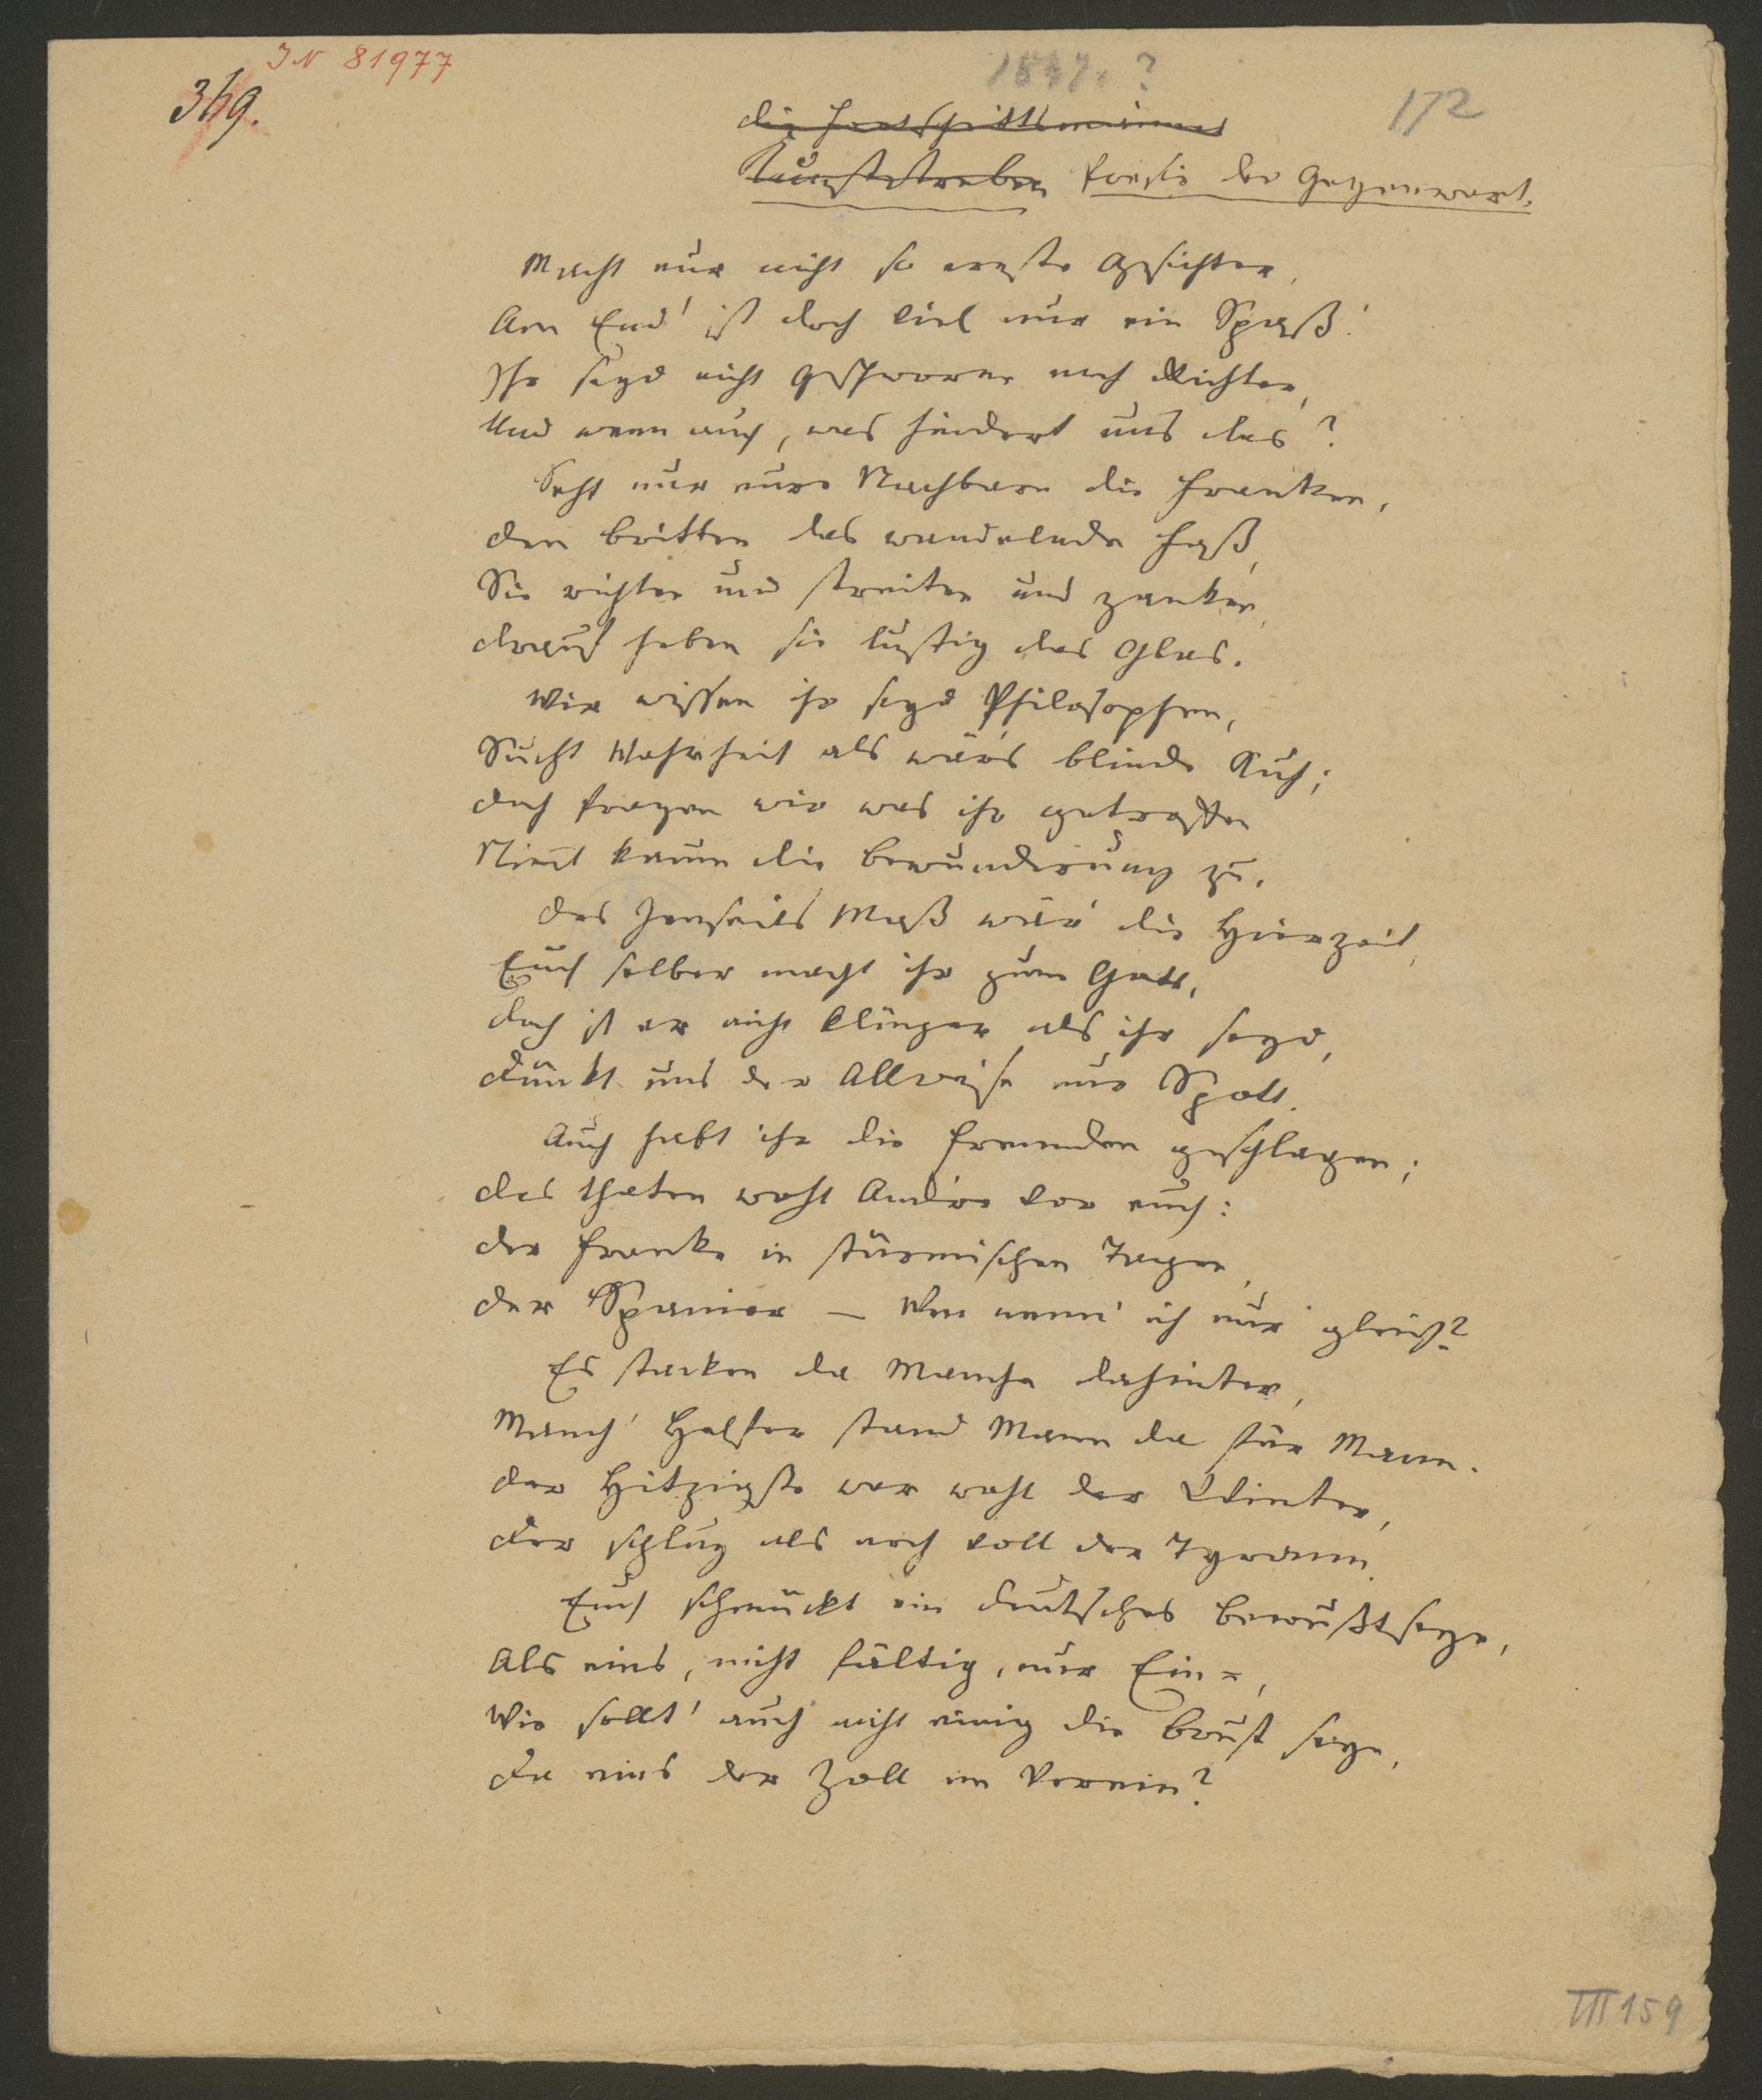 IN 81977
369.
1847. ?
172
die Fortschrittsmänner
Kunststreben Poesie der Gegenwart.
Macht nur nicht so ernste Gesichter,
Am End' ist doch viel nur ein Spaß!
Ihr seyd nicht Geschworne noch Richter,
Und wenn auch, was hindert uns das?
Seht nur eure Nachbarn die Franken,
Den Britten das wandelnde Faß,
Sie richten und streiten und zanken,
Drauf heben sie lustig das Glas.
Wir wissen ihr seyd Philosophen,
Sucht Wahrheit als wärs blinde Kuh;
Doch fragen wir was ihr getroffen
Nimt kaum die Bewunderung zu.
Des Jenseits Maß wär' die Hierzeit,
Euch selber macht ihr zum Gott,
Doch ist er nicht klüger als ihr seyd,
Dünkt uns der Allweise nur Spott.
Auch habt ihr die Fremden geschlagen;
Das thaten wohl Andre vor euch:
Der Franke in stürmischen Tagen,
Der Spanier — Wen nenn' ich nur gleich?
Es stacken da Manche dahinter,
Manch' Helfer stand Mann da für Mann.
Der Hitzigste war wohl der Winter,
Der schlug als noch voll der Tyrann.
Euch schmückt ein deutsches Bewußtseyn,
Als eins, nicht fältig, nur Ein-,
Wie sollt' auch nicht einig die Brust seyn,
Da eins der Zoll im Verein?
III 159